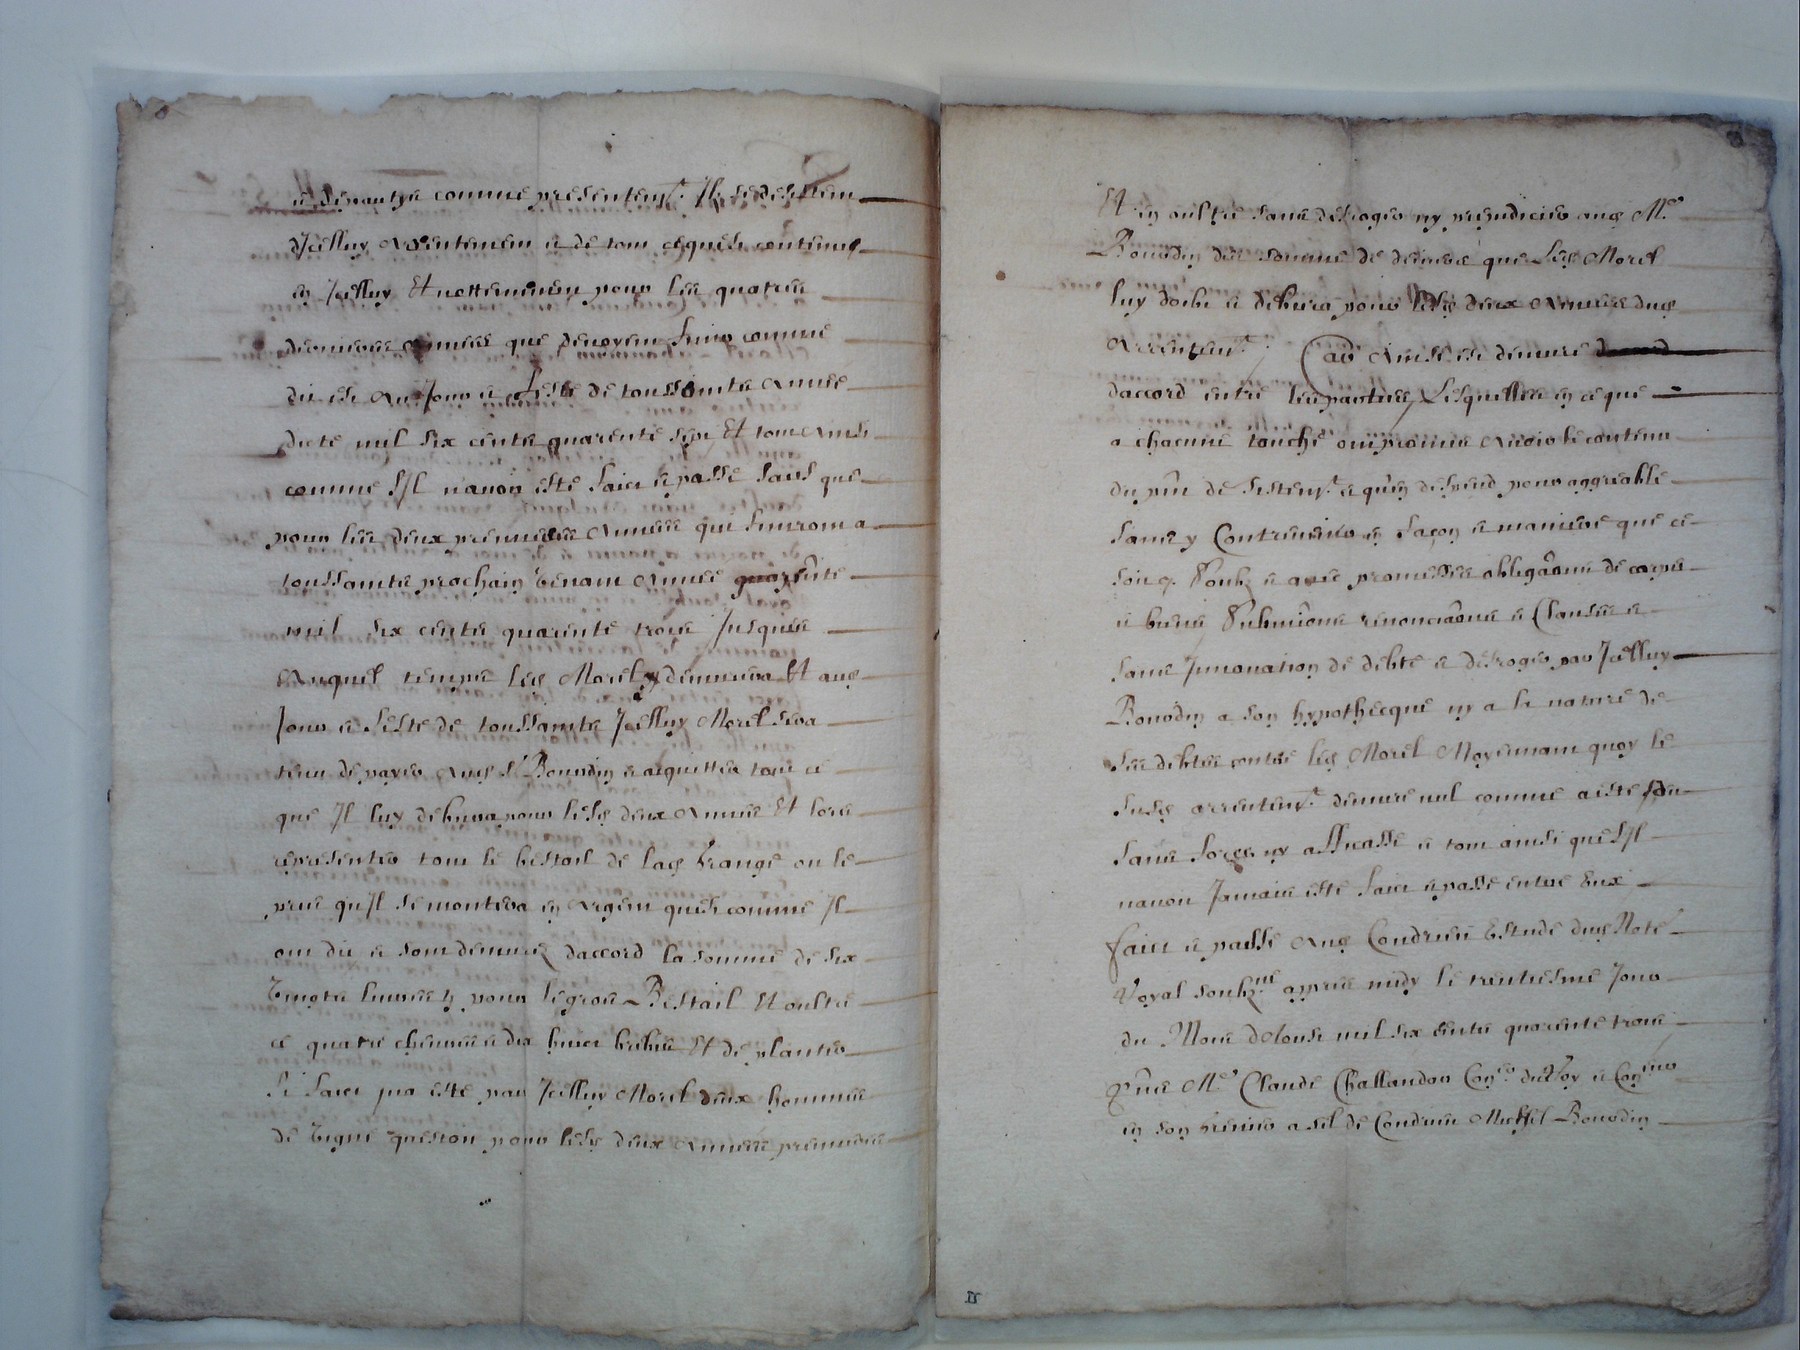 & départyr comme presentem.t Ilz se desistent
dicelluy arrentement & de tout ce quest contenu
en Icelluy Et nottemment pour les quatres
dernieres années que debvroient finir comme
dit est au Jour & feste de toussaintz année
dicte mil six centz quarente sept Et tout ainsi
comme s'Il n'avoit esté faict & passé sauf que
pour les deux premieres années qui finiront a
toussaintz prochain venant année quarente
mil six centz quarente trois Jusques
Auquel temps led. Morel y demeurera Et aud.
Jour & feste de toussaintz Icelluy Morel sera
tenu de payer aud. S.r Bourdin & acquitter tout ce
que Il luy debvra pour lesd. deux années Et lors
representer tout le bestail de lad. grange ou le
prix qu'Il se montera en argent quest comme Il
ont dit & sont demeurez d'accord la somme de six
vingtz livres tz pour le gros Bestail Et oultre
ce quatre chevres & dix huict brebis Et de planter
si faict na esté par Icelluy Morel deux hommées
de vigne pour lesd. deux années premieres
Et en oultre sans desroger ny preiudicier aud. M.e
Bourdin des somme de deniers que led. Morel
luy doibt & debvra pour lesd. deux années dud.
Arrentem.t Car Ainsi est demeuré
daccord entre les parties Lesquelles en ce que
a chacune touche ont promis avoir le contenu
du pnt de sistem.t & quen despend pour aggreable
sans y Contrevenir en façon & maniere que ce
soit & avec promesses obligaons de corps
& biens Submions renonciaons & Clauses &
sans Innovation de debte & desroger par Icelluy
Bourdin a son hypothecque ny a la nature de
ses debtes contre led. Morel Moyennant quoy le
susd. arrentem.t demeure nul comme a esté
sans force ny efficasse & tout ainsi que s'Il
navoit Jamais esté faict & passé entre Eux
faict & passé aud. Condrieu Estude dud. Note
Royal soubz.né appres midy le trentiesme Jour
du Mois d'Aoust mil six centz quarente trois
Pnts M.e Claude Challandon Con.er du Roy &
en son grenier a sel de Condrieu Michel Bourdin